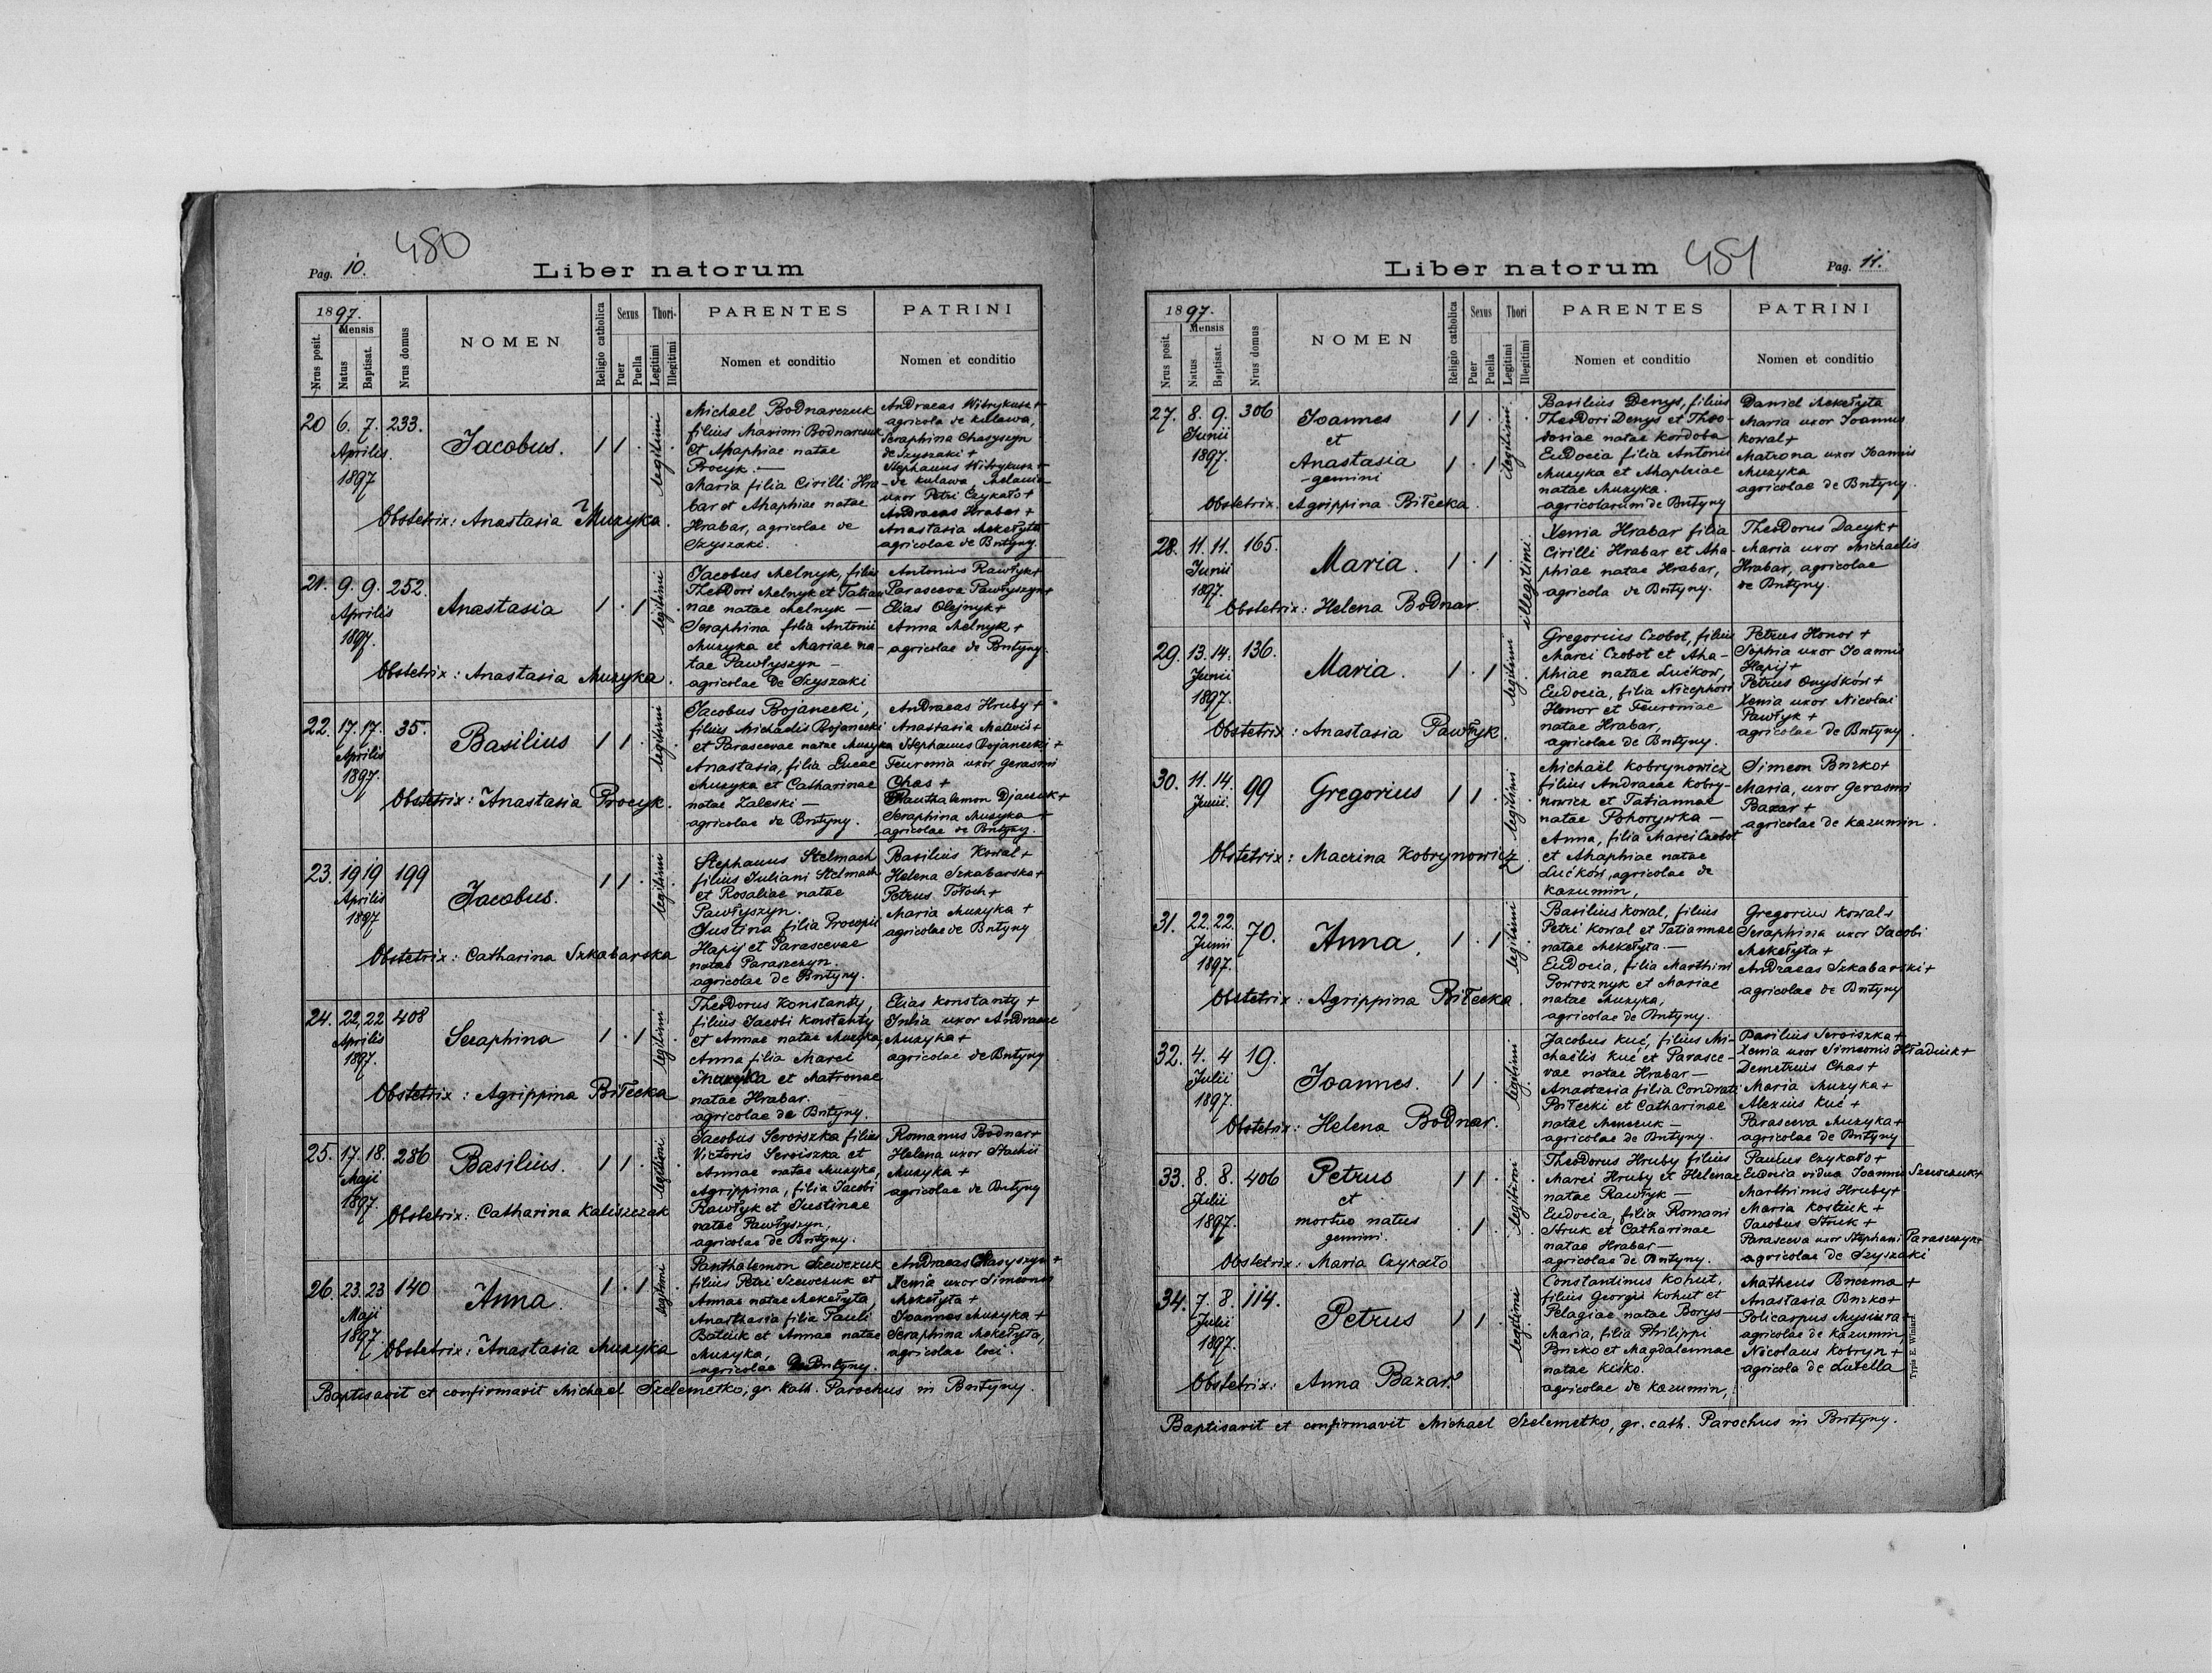 Pag. 10.
480
Liber natorum
1897.
Nrus posit.
Mensis
Natus
Baptisat.
Nrus domus
NOMEN
Religio catholica
Sexus
Puer
Puella
Thori
Legitimi
Illegitimi
PARENTES
Nomen et conditio
PATRINI
Nomen et conditio
20 6. 7. 233.
Aprilis
1897
Jacobus.
1 1 . legitimi .
Michael Bodnarczuk
filius Maximi Bodnarczuk
et Ahaphiae natae
Procyk. —
Maria filia Cirilli Hra-
bar et Ahaphiae natae
Hrabar, agricolae de
Szyszaki.
Andraeas Witrykusz +
agricola de Kulawa,
Seraphina Chasyszyn
de Szyszaki +
Stephanus Witrykusz +
de Kulawa, Melania
uxor Petri Czykało +
Andraeas Hrabar +
Anastasia Mekełyta
agricolae de Bntyny.
Obstetrix: Anastasia Muzyka.
21. 9. 9. 252.
Aprilis
1897.
Anastasia
1 . 1 legitimi .
Jacobus Melnyk, filius
Theodori Melnyk et Tatian
nae natae Melnyk —
Seraphina filia Antonii
Muzyka et Mariae na-
tae Pawłyszyn —
agricolae de Szyszaki
Antonius Rawłyk +
Parasceva Pawłyszyn +
Elias Olejnyk +
Anna Melnyk +
agricolae de Bntyny.
Obstetrix: Anastasia Muzyka.
22. 17. 17. 35.
Aprilis
1897.
Basilius
1 1 . legitimi .
Jacobus Bojanecki,
filius Michaelis Bojanecki
et Parascevae natae Muzyka
Anastasia, filia Lucae
Muzyka et Catharinae
natae Zaleski —
agricolae de Bntyny.
Andraeas Hruby +
Anastasia
Stephanus Bojanecki +
Feuronia uxor Gerasmi
Chas +
Panthalemon Djaczuk +
Seraphina Muzyka +
agricolae de Bntyny.
Obstetrix: Anastasia Procyk.
23. 19 19 199
Aprilis
1897
Jacobus.
1 1 . legitimi .
Stephanus Stelmach
filius Juliani Stelmach
et Rosaliae natae
Pawłyszyn.
Justina filia Procopii
Hapij et Parascevae
natae Paraszczyn.
agricolae de Bntyny.
Basilius Kowal +
Helena Szkabarska +
Petrus Tołoch +
Maria Muzyka +
agricolae de Bntyny
Obstetrix: Catharina Szkabarska
24. 22. 22 408
Aprilis
1897.
Seraphina
1 . 1 legitimi .
Theodorus Konstanty,
filius Jacobi Konstanty
et Annae natae Muzyka
Anna filia Marci
Muzyka et Matronae
natae Hrabar.
agricolae de Bntyny.
Elias Konstanty +
Julia uxor Andraeae
Muzyka +
agricolae de Bntyny
Obstetrix: Agrippina Biłecka
25. 17. 18. 286
Maji
1897.
Basilius.
1 1 . legitimi .
Jacobus Seroiszka filius
Victoris Seroiszka et
Annae natae Muzyka,
Agrippina, filia Jacobi
Rawłyk et Justinae
natae Pawłyszyn,
agricolae de Bntyny.
Romanus Bodnar +
Helena uxor Stachii
Muzyka +
agricolae de Bntyny
Obstetrix: Catharina Kaliszczak
26. 23. 23 140
Maji
1897
Anna.
1 . 1 legitimi .
Panthalemon Szewczuk
filius Petri Szewczuk et
Annae natae Mekełyta
Anasthasia filia Pauli
Batiuk et Annae natae
Muzyka,
agricolae de Bntyny.
Andraeas Chasyszyn +
Xenia uxor Simeonis
Mekełyta +
Joannes Muzyka +
Seraphina Mekełyta,
agricolae loci.
Obstetrix: Anastasia Muzyka
Baptisavit et confirmavit Michael Szelemetko, gr. kath. Parochus in Bntyny.
Liber natorum
451
Pag. 11.
1897.
Nrus posit.
Mensis
Natus
Baptisat.
Nrus domus
NOMEN
Religio catholica
Sexus
Puer
Puella
Thori
Legitimi
Illegitimi
PARENTES
Nomen et conditio
PATRINI
Nomen et conditio
27. 8. 9. 306
Junii
1897.
Joannes
et
Anastasia
- gemini
1 1 .
1 . 1 legitimi .
Basilius Denys, filius
Theodori Denys et Theo-
dosiae natae Kordoba
Eudocia filia Antonii
Muzyka et Ahaphiae
natae Muzyka.
agricolarum de Bntyny
Daniel Mekełyta
Maria uxor Joannis
Kowal +
Matrona uxor Joannis
Muzyka
agricolae de Bntyny.
Obstetrix. Agrippina Biłecka
28. 11. 11. 165.
Junii
1897.
Maria.
1 . 1 . illegitimi.
Xenia Hrabar filia
Cirilli Hrabar et Aha-
phiae natae Hrabar,
agricola de Bntyny.
Theodorus Dacyk +
Maria uxor Michaelis
Hrabar, agricolae
de Bntyny.
Obstetrix: Helena Bodnar
29. 13. 14. 136.
Junii
1897.
Maria.
1 . 1 legitimi
Gregorius Czobot, filius
Marci Czobot et Aha-
phiae natae Łućkow,
Eudocia, filia Nicephori
Honor et Feuroniae
natae Hrabar,
agricolae de Bntyny.
Petrus Honor +
Sophia uxor Joannis
Hapij +
Petrus Onyśków +
Xenia uxor Nicolai
Pawłyk +
agricolae de Bntyny.
Obstetrix: Anastasia Pawłyk.
30. 11. 14. 99
Junii.
Gregorius
1 1 . legitimi .
Michaël Kobrynowicz
filius Andraeae Kobry-
nowicz et Tatiannae
natae Pohorywka —
Anna, filia Marci Czobot
et Ahaphiae natae
Łućkow, agricolae de
Kazumin,
Simeon Bnzko +
Maria, uxor Gerasmi
Bazar +
agricolae de Kazumin.
Obstetrix: Macrina Kobrynowicz
31. 22. 22. 70.
Junii
1897.
Anna,
1 . 1 legitimi .
Basilius Kowal, filius
Petri Kowal et Tatiannae
natae Mekełyta —
Eudocia, filia Marthini
Powroznyk et Mariae
natae Muzyka,
agricolae de Bntyny.
Gregorius Kowal +
Seraphina uxor Jacobi
Mekełyta +
Andraeas Szkabarski +
agricolae de Bntyny
Obstetrix: Agrippina Biłecka.
32. 4. 4 19.
Julii
1897.
Joannes.
1 1 . legitimi .
Jacobus Kuć, filius Mi-
chaëlis Kuć et Parasce-
vae natae Hrabar —
Anastasia filia Condrati
Biłecki et Catharinae
natae
agricolae de Bntyny.
Basilius Seroiszka +
Xenia uxor Simeonis Hładiuk +
Demetrius Chas +
Maria Muzyka +
Alexius Kuć +
Parasceva Muzyka +
agricolae de Bntyny
Obstetrix: Helena Bodnar.
33. 8. 8. 406
Julii
1897.
Petrus
et
mortuo natus
gemini.
1 1 .
. 1 . legitimi .
Theodorus Hruby filius
Marci Hruby et Helenae
natae Rawłyk —
Eudocia, filia Romani
Struk et Catharinae
natae Hrabar —
agricolae de Bntyny.
Paulus Czykało +
Eudocia vidua Joannis Szewczuk +
Marthinus Hruby +
Maria Kostiuk +
Jacobus Struk +
Parasceva uxor Stephani Paraszczyn
agricolae de Szyszaki
Obstetrix: Maria Czykało
34. 7. 8. 114.
Julii
1897.
Petrus
1 1 . legitimi .
Constantinus Kohut,
filius Georgii Kohut et
Pelagiae natae Borys —
Maria, filia Philippi
Bnzko et Magdalennae
natae Kiśko.
agricolae de Kazumin,
Matheus Bnczma +
Anastasia Bnzko +
Policarpus Mysiura +
agricolae de Kazumin,
Nicolaus Kobryn +
agricola de Lutella
Obstetrix: Anna Bazar.
Baptisavit et confirmavit Michael Szelemetko, gr. cath. Parochus in Bntyny.
Typis E. Winiarz